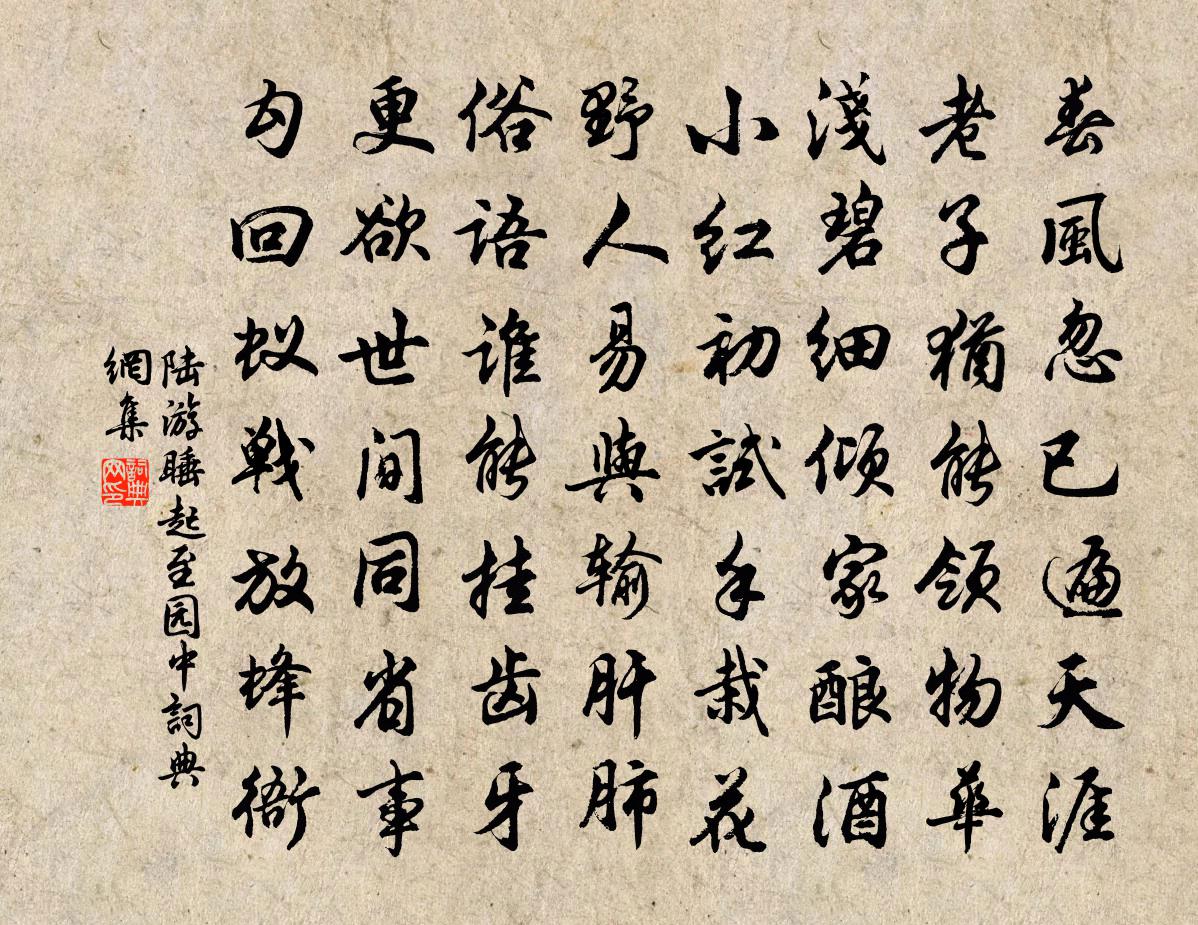 春風忽已遍天涯
老子猶能領物華
淺碧細傾家酿酒
小红初試手栽花
野人易與输肝肺
俗语谁能挂齿牙
更欲世间同省事
勾回蚁戰放蜂衙
陆游睡起至园中詞典
網集
詞典
网印